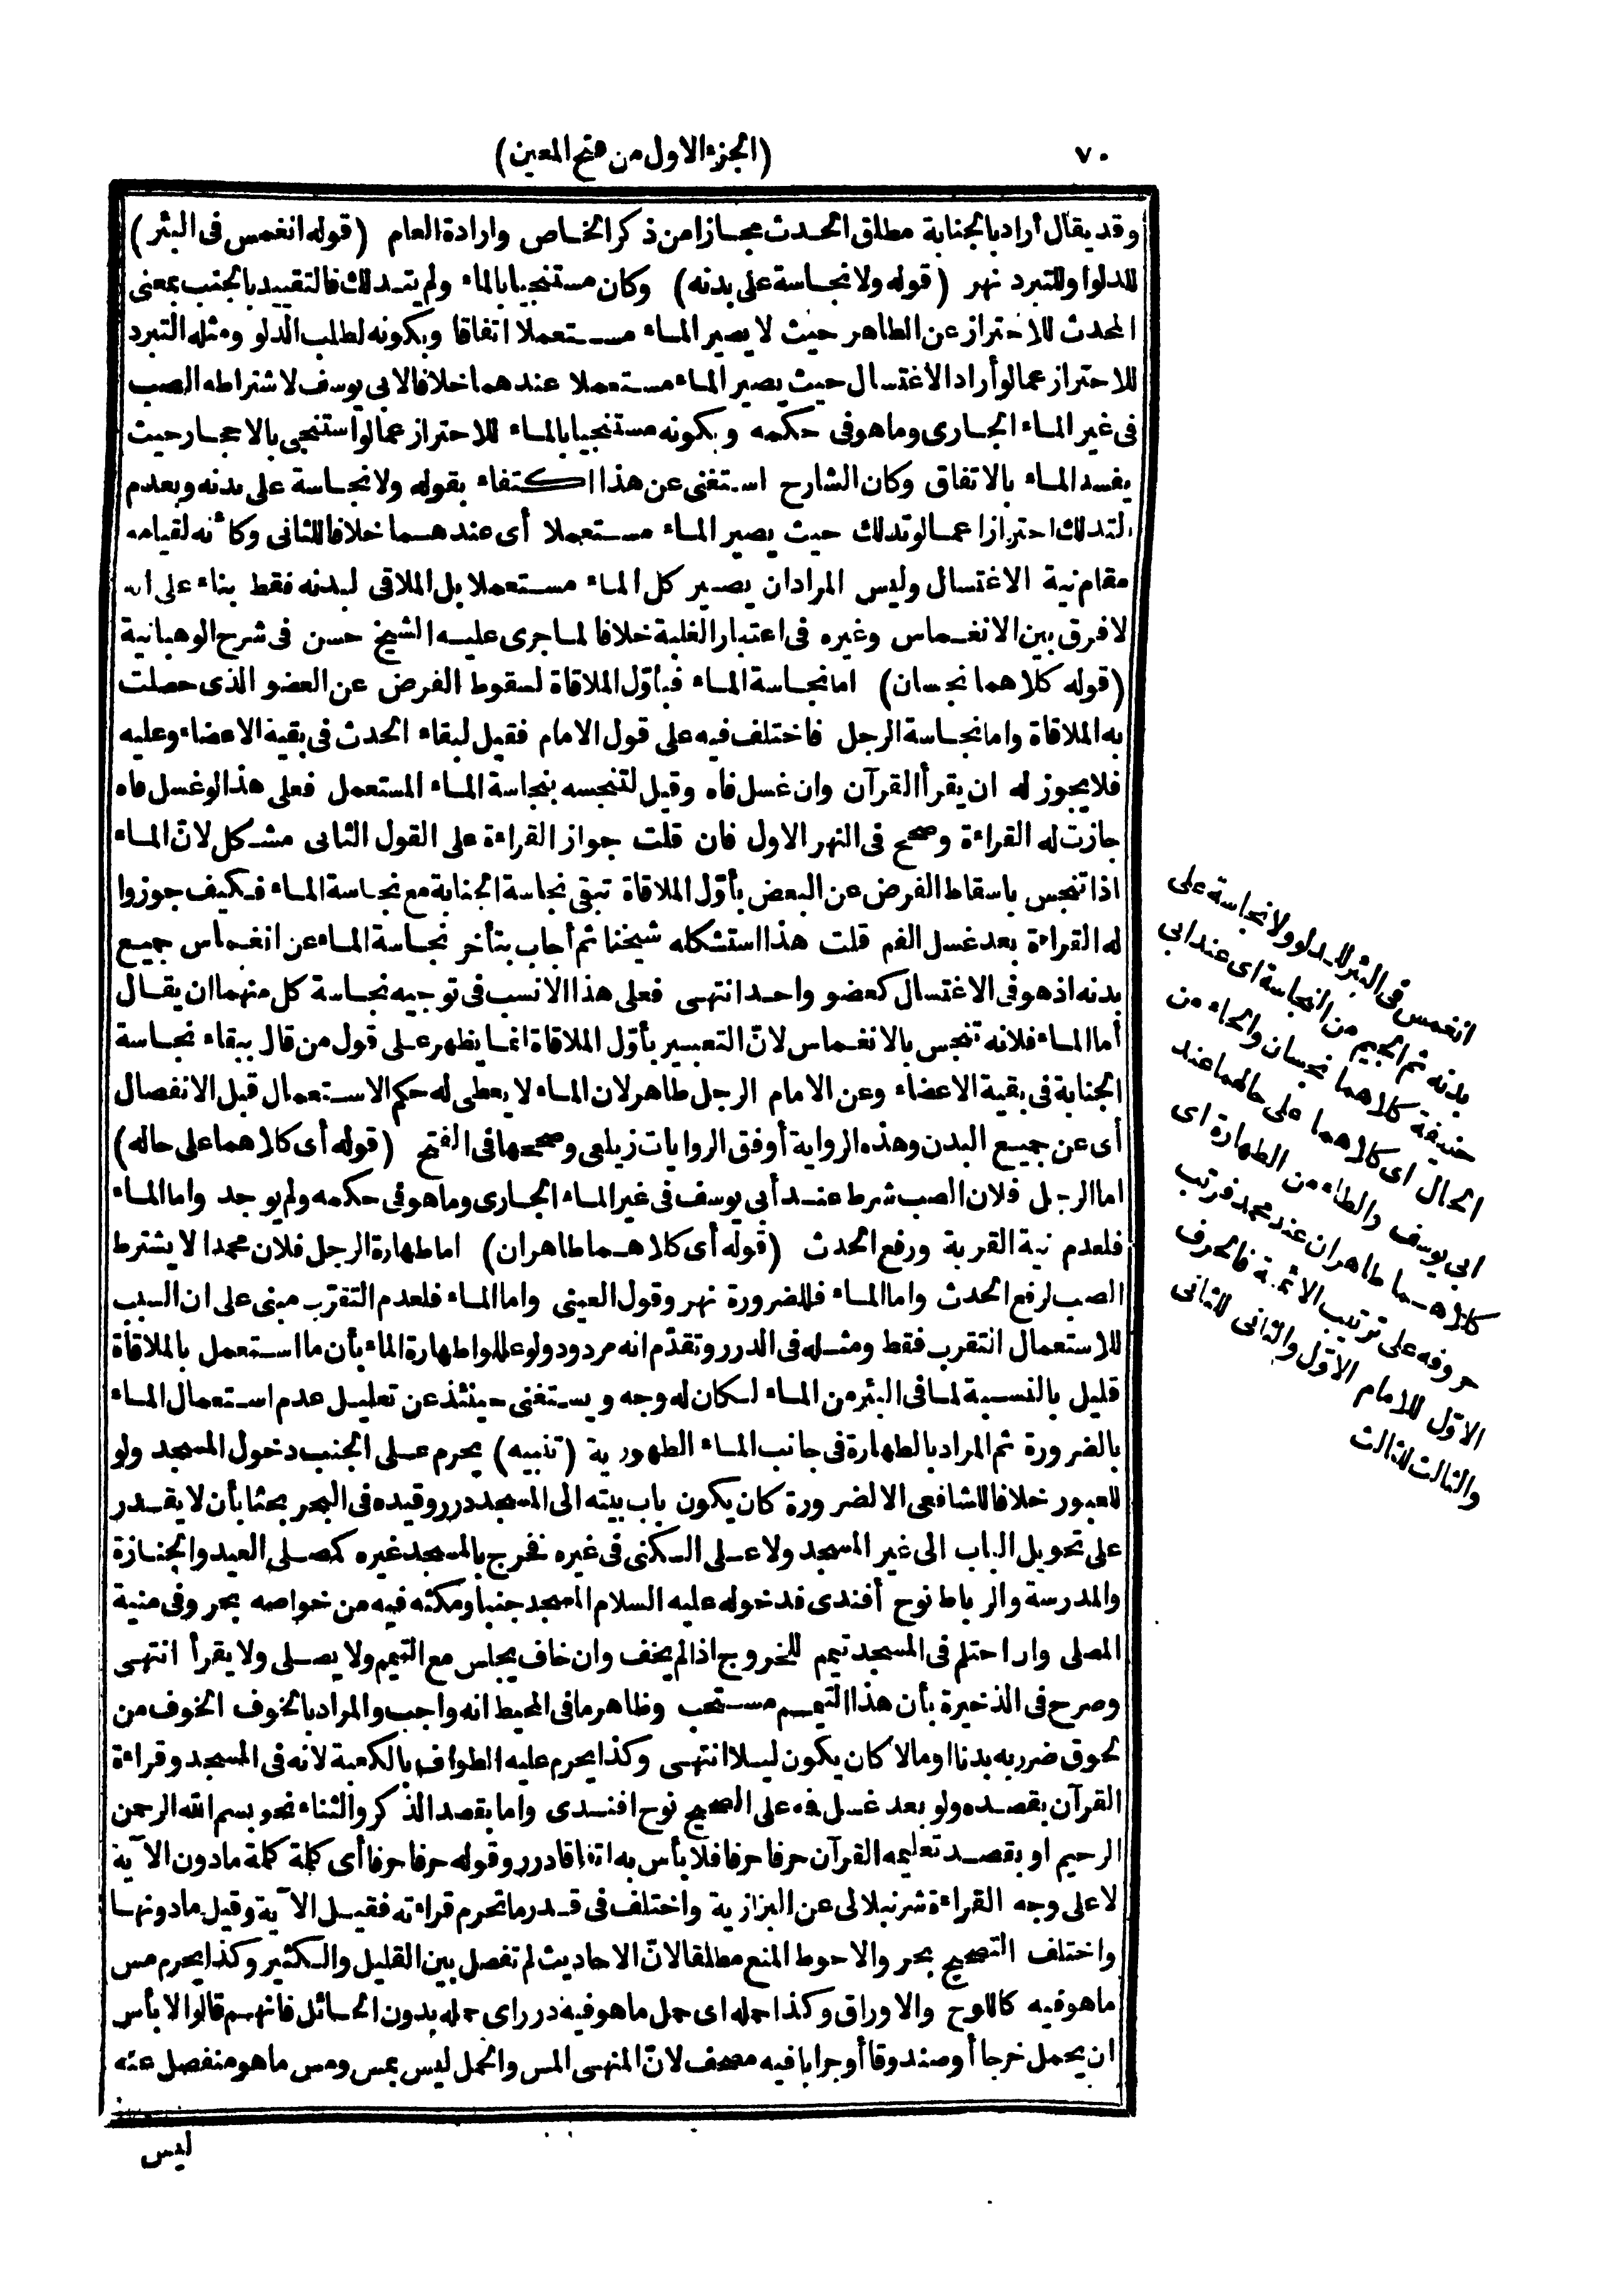 ٧٠
(الجزء الاول من فتح المعين)
وقد يقال أراد بالجنابة مطلق الحدث مجازا من ذكر الخاص وارادة العام (قوله انغمس فى البئر)
للدلو او للتبرد نهر (قوله ولا نجاسة على بدنه) وكان مستنجيا بالماء ولم يتدلك فالتقييد بالجنب بمعنى
المحدث للاحتراز عن الطاهر حيث لا يصير الماء مستعملا اتفاقا وبكونه لطلب الدلو ومثله التبرد
للاحتراز عما لو أراد الاغتسال حيث يصير الماء مستعملا عندهما خلافا لابى يوسف لاشتراطه الصب
فى غير الماء الجارى وما هو فى حكمه وبكونه مستنجيا بالماء للاحتراز عما لو استنجى بالاحجار حيث
يفسد الماء بالاتفاق وكان الشارح استغنى عن هذا اكتفاء بقوله ولا نجاسة على بدنه وبعدم
التدلك احترازا عما لو تدلك حيث يصير الماء مستعملا أى عندهما خلافا للثانى وكأنه لقيامه
مقام نية الاغتسال وليس المراد ان يصير كل الماء مستعملا بل الملاقى لبدنه فقط بناء على انه
لا فرق بين الانغماس وغيره فى اعتبار الغلبة خلافا لما جرى عليه الشيخ حسن فى شرح الوهبانية
(قوله كلاهما نجسان) اما نجاسة الماء فبأوّل الملاقاة لسقوط الفرض عن العضو الذى حصلت
به الملاقاة واما نجاسة الرجل فاختلف فيه على قول الامام فقيل لبقاء الحدث فى بقية الاعضاء وعليه
فلا يجوز له ان يقرأ القرآن وان غسل فاه وقيل لتنجسه بنجاسة الماء المستعمل فعلى هذا لو غسل فاه
جازت له القراءة وصحح فى النهر الاول فان قلت جواز القراءة على القول الثانى مشكل لانّ الماء
اذا تنجس باسقاط الفرض عن البعض بأوّل الملاقاة تبقى نجاسة الجنابة مع نجاسة الماء فكيف جوزوا
له القراءة بعد غسل الفم قلت هذا استشكله شيخنا ثم أجاب بتأخر نجاسة الماء عن انغماس جميع
بدنه اذ هو فى الاغتسال كعضو واحد انتهى فعلى هذا الانسب فى توجيه نجاسة كل منهما ان يقال
أما الماء فلانه تنجس بالانغماس لانّ التعبير بأوّل الملاقاة انما يظهر على قول من قال ببقاء نجاسة
الجنابة فى بقية الاعضاء وعن الامام الرجل طاهر لان الماء لا يعطى له حكم الاستعمال قبل الانفصال
أى عن جميع البدن وهذه الرواية أوفق الروايات زيلعى وصححها فى الفتح (قوله أى كلاهما على حاله)
اما الرجل فلان الصب شرط عند أبى يوسف فى غير الماء الجارى وما هو فى حكمه ولم يوجد واما الماء
فلعدم نية القربة ورفع الحدث (قوله أى كلاهما طاهران) اما طهارة الرجل فلان محمدا لا يشترط
الصب لرفع الحدث واما الماء فللضرورة نهر وقول العينى واما الماء فلعدم التقرّب مبنى على ان السبب
للاستعمال التقرب فقط ومثله فى الدرر وتقدّم انه مردود ولو عللوا طهارة الماء بأن ما استعمل بالملاقاة
قليل بالنسبة لما فى البئر من الماء لكان له وجه ويستغنى حينئذ عن تعليل عدم استعمال الماء
بالضرورة ثم المراد بالطهارة فى جانب الماء الطهورية (تنبيه) يحرم على الجنب دخول المسجد ولو
للعبور خلافا للشافعى الا لضرورة كان يكون باب بيته الى المسجد درر وقيده فى البحر بحثا بأن لا يقدر
على تحويل الباب الى غير المسجد ولا على السكنى فى غيره فخرج بالمسجد غيره كمصلى العيد والجنازة
والمدرسة والرباط نوح أفندى فدخوله عليه السلام المسجد جنبا ومكثه فيه من خواصه بحر وفى منية
المصلى وان احتلم فى المسجد تيمم للخروج اذا لم يخف وان خاف يجلس مع التيمم ولا يصلى ولا يقرأ انتهى
وصرح فى الذخيرة بأن هذا التيمم مستحب وظاهر ما فى المحيط انه واجب والمراد بالخوف الخوف من
لحوق ضرر به بدنا او مالا كان يكون ليلا انتهى وكذا يحرم عليه الطواف بالكعبة لانه فى المسجد وقراءة
القرآن بقصده ولو بعد غسل فمه على الصحيح نوح افندى واما بقصد الذكر والثناء نحو بسم الله الرحمن
الرحيم او بقصد تعليمه القرآن حرفا حرفا فلا بأس به اتفاقا درر وقوله حرفا حرفا أى كلمة كلمة ما دون الآية
لا على وجه القراءة شرنبلالى عن البزازية واختلف فى قدر ما تحرم قراءته فقيل الآية وقيل ما دونها
واختلف التصحيح بحر والاحوط المنع مطلقا لانّ الاحاديث لم تفصل بين القليل والكثير وكذا يحرم مس
ما هو فيه كاللوح والاوراق وكذا حمله اى حمل ما هو فيه درر اى حمله بدون الحائل فانهم قالوا لا بأس
ان يحمل خرجا أو صندوقا أو جرابا فيه مصحف لانّ المنهى المس والحمل ليس بمس ومس ما هو منفصل عنه
ليس
انغمس فى البئر للدلو ولا نجاسة على
بدنه ثم الجيم من النجاسة اى عند ابى
حنيفة كلاهما نجسان والحاء من
الحال اى كلاهما على حالهما عند
ابى يوسف والطاء من الطهارة اى
كلاهما طاهران عند محمد فرتب
حروفه على ترتيب الائمة فالحرف
الاوّل للامام الاوّل والثانى للثانى
والثالث للثالث